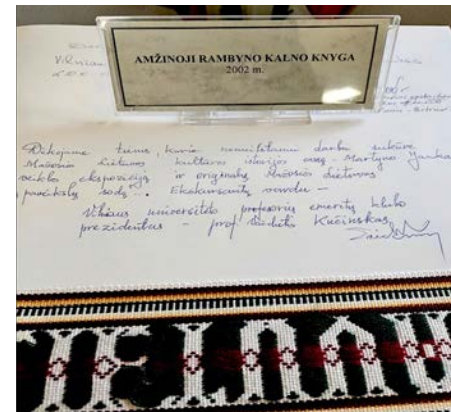 Vilnius
AMŽINOJI RAMBYNO KALNO KNYGA
2002 m.
Dėkojame tiems, kurie nenuilstamu darbu sukūrė
Mažosios Lietuvos kultūros istorijos Martyno Jankaus
veiklos ekspoziciją ir originalų Mažosios Lietuvos
sodą. Ekskursantų vardu –
Vilniaus universiteto profesorių emeritų klubo
prezidentas – prof. Vaidutis Kučinskas
LIETUV